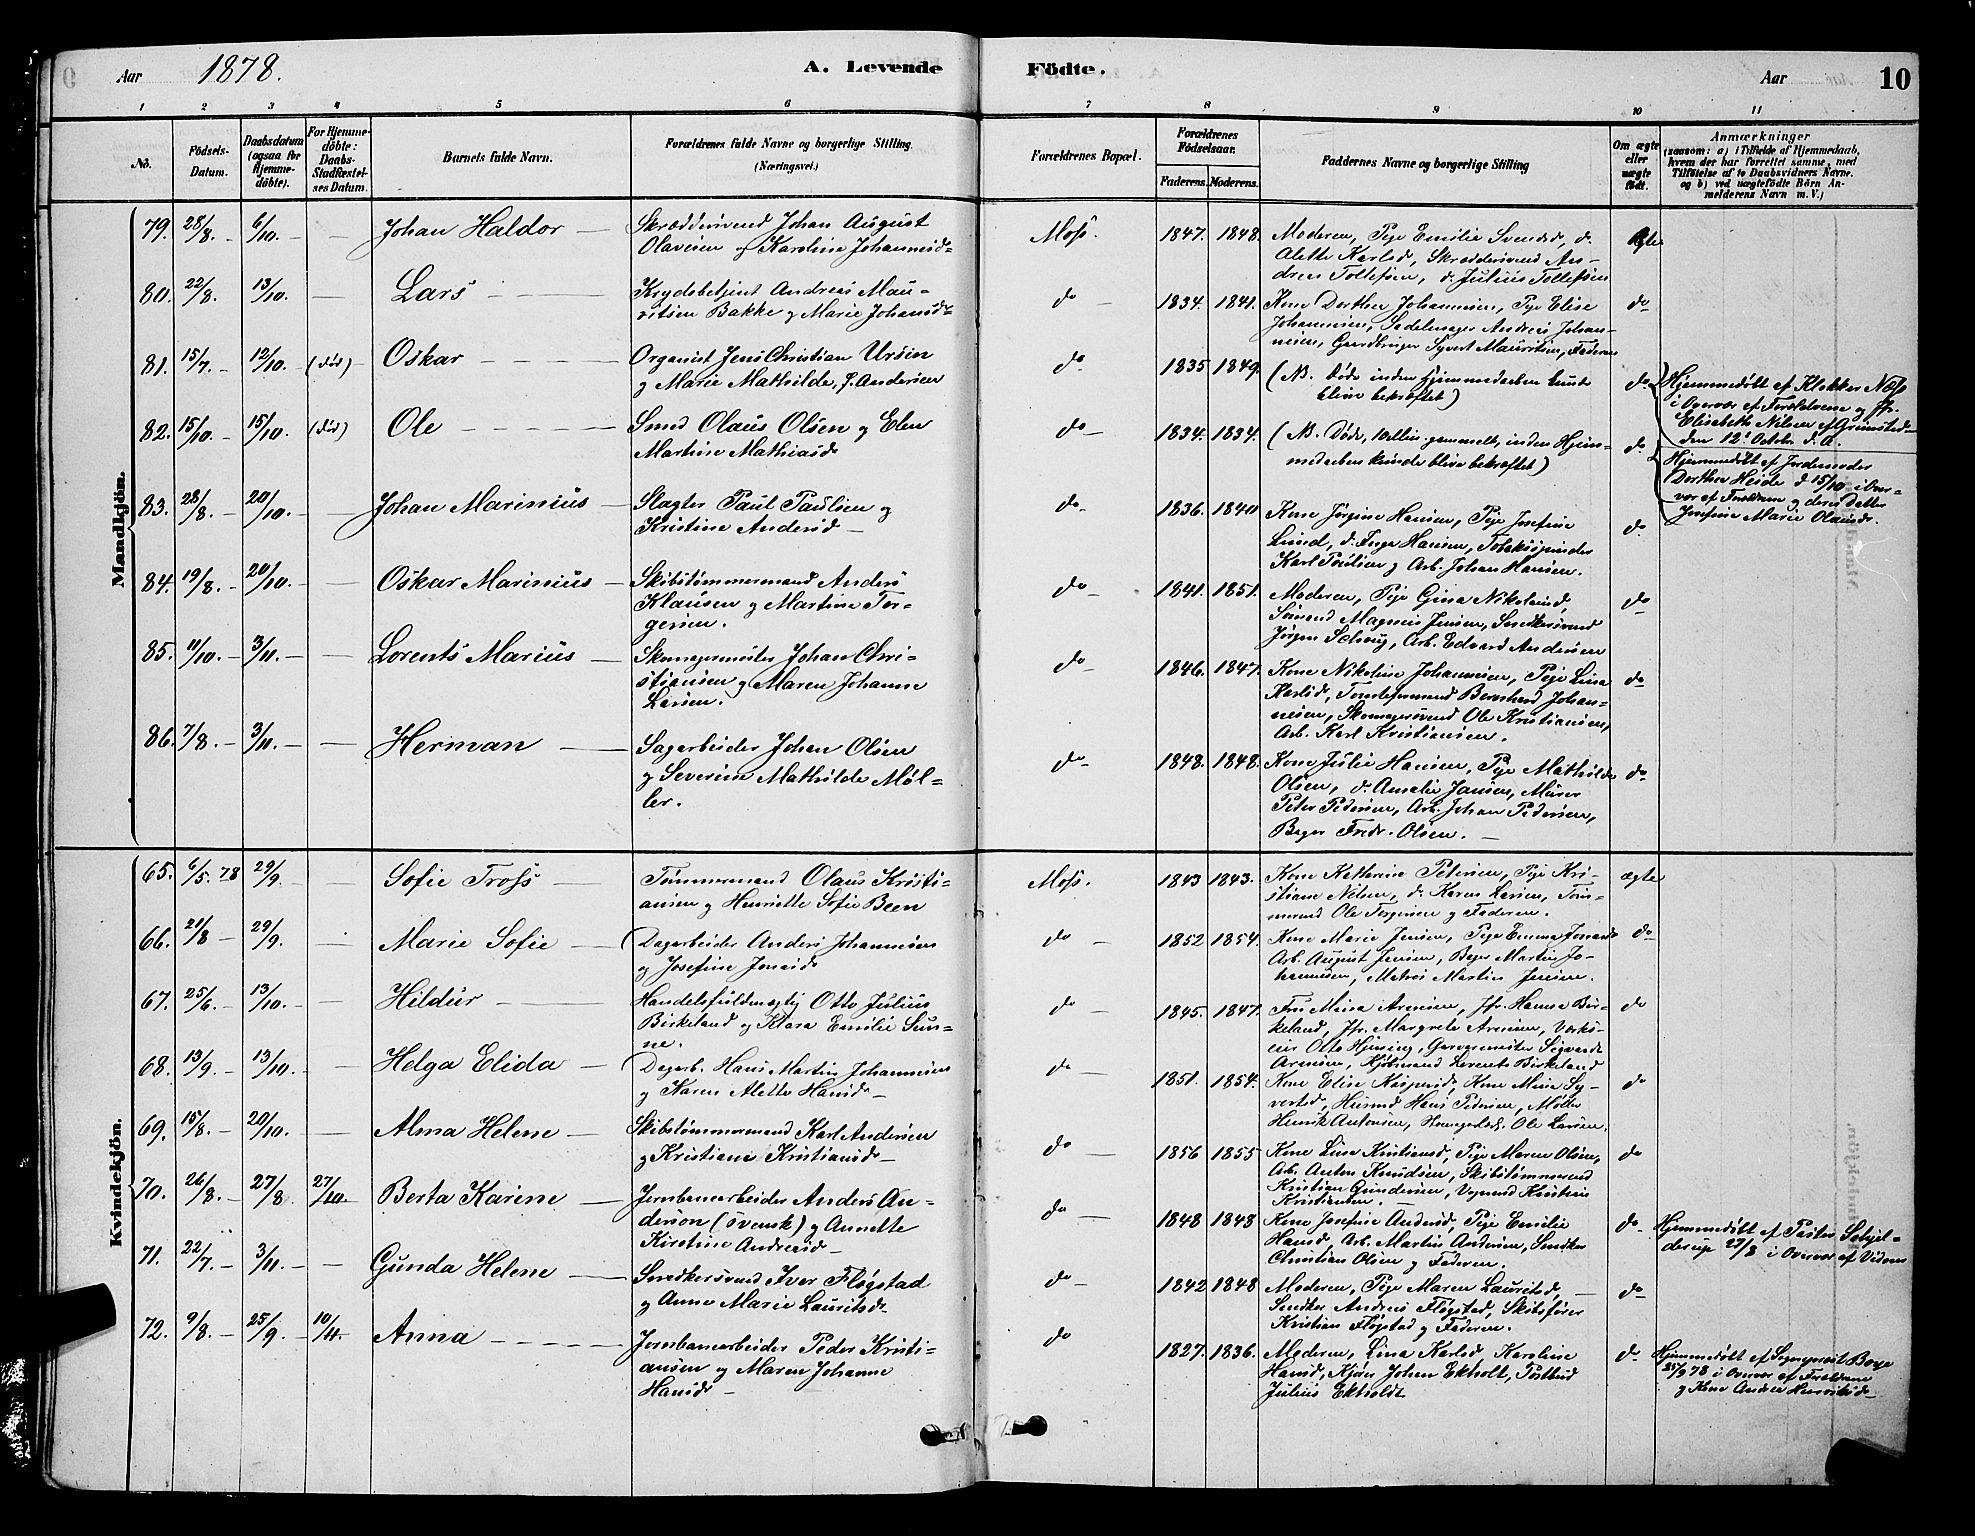 Aar 1878. A. Levende Födte. Aar 10
1 2 3 4 5 6 7 8 9 10 11
No.
Födsels-
Datum.
Daabsdatum
(ogsaa for
Hjemme-
döbte).
For Hjemme-
döbte:
Daabs-
Stadfæstel-
ses Datum.
Barnets fulde Navn.
Forældrenes fulde Navne og borgerlige Stilling.
(Næringsvei.)
Forældrenes Bopæl.
Forældrenes
Födselsaar.
Faderens. Moderens.
Faddernes Navne og borgerlige Stilling
Om ægte
eller
uægte
födt.
Anmærkninger
(saasom: a) i Tilfælde af Hjemmedaab,
hvem der har forrettet samme, med
Tilföielse af to Daabsvidners Navne.
og b) ved uægtefödte Börn An-
melderens Navn m. V.)
Mandkjön.
79. 28/8. 6/10. — Johan Haldor — Skræddersvend Johan August
Olavesen og Karoline Johannesd.
Moss. 1847. 1848. Moderen, Pige Emilie Svendsd, d.
Alette Karlsd, Skræddersvend An-
dreas Tollefsen, d. Julius Tollefsen
ægte
80. 22/8. 13/10. — Lars — Krydsbetjent Andreas Mau-
ritsen Bakke og Marie Johansd.
do — 1834. 1841. Kone Dorthea Johannesen, Pige Elise
Johannesen, Sadelmager Andreas Johan-
nesen, Gaardbruger Syvert Mauritsen, Faderen
do
81. 15/7. 12/10. (död) — Oskar — Organist Jens Christian Ursin
og Marie Mathilde, f. Andersen
do 1835 1849. (NB. Döde inden Hjemmedaaben kunde
blive bekræftet)
do Hjemmedöbt af Klokker Næss
i Overvær af Forældrene og Jfr.
Elisabeth Nilsen af Grimstad
den 12. Octobr d. A.
82. 15/10. 15/10. (död) Ole — Smed Olaus Olsen og Elen
Martine Mathiasd.
do 1834. 1834. (NB. Döde, gammelt, inden Hjem-
medaaben kunde blive bekræftet)
do Hjemmedöbt af Jordemoder
Dorthea Heide d 15/10 i Over-
vær af Forældrene og deres Datter
Josefine Marie Olausd.
83. 28/8. 20/10. — Johan Marinius — Slagter Paul Paulsen og
Kristine Andersd —
do 1836. 1840 Kone Jørgine Hansen, Pige Josefine
Lund, d. Inga Hansen, Tobakspinder
Karl Poulsen og Arb. Johan Hansen.
do
84. 19/8. 20/10. — Oskar Marinius — Skibstömmermand Anders
Klausen og Martine Tor-
gersen.
do 1841. 1851. Moderen, Pige Gina Nikolaisd,
Sömand Magnus Jensen, Snedkersvend
Jørgen Solvig, Arb. Edvard Andersen
do
85. 11/10. 3/11. — Lorents Marius — Skomagermester Johan Chri-
stiansen og Maren Johanne
Larsen.
do 1846. 1847. Kone Nikoline Johannesen, Pige Lina
Karlsd, Bernhard Johan-
nesen, Skomagersvend Ole Kristiansen,
Arb. Karl Kristiansen.
do
86. 7/8. 3/11. — Herman — Sagarbeider Johan Olsen
og Severine Mathilde Møl-
ler.
do 1848. 1848. Kone Julie Hansen, Pige Mathilde
Olsen, d. Amalie Jansen, Murer
Peter Pedersen, Arb. Johan Pedersen,
Bager Fredr. Olsen. —
do
Kvindekjön.
65. 6/5. 78 29/9. — Sofie Tross — Tömmermand Olaus Kristi-
ansen og Henriette Sofie Been
Moss. 1843 1843. Kone Katherine Petersen, Pige Kri-
stiane Nilsen, d. Karen Larsen, Töm-
mermand Ole Torgersen og Faderen.
ægte
66. 21/8 29/9. — Marie Sofie — Dagarbeider Anders Johannesen
og Josefine Jonasd.
do — 1852 1854. Kone Marie Jensen, Pige Emma Jonasd
Arb. August Jensen, Bager Martin Jo-
hannesen, Matros Martin Jensen.
do
67. 25/6. 13/10. — Hildur — Handelsfuldmægtig Otto Julius
Birkeland og Klara Emilie Sun-
ne.
do 1845. 1847. Fru Mina Arnesen, Jfr. Hanna Bir-
keland, Jfr. Margrete Arnesen, Værks-
eier Otto Hjersing, Garvermester Sigvardt
Arnesen, Kjöbmand Lorents Birkeland
do
68. 13/9. 13/10. — Helga Elida — Dagarb. Hans Martin Johannesen
og Karen Alette Hansd. —
do — 1851. 1854. Kone Elise Kaspersd, Kone Mina Sy-
vertsd, Husmd Hans Pedersen, Møller
Henrik Antonsen, Ole Larsen.
do
69. 15/8. 20/10. — Alma Helene — Skibstömmermand Karl Andersen
og Kristiane Kristiansd. —
do 1856 1855 Kone Lina Kristiansd, Pige Maren Olsen,
Arb. Anton Knudsen, Skibstömmermand
Kristian Gundersen, Kristian
Kristiansen.
do
70. 26/8. 27/8 27/10. Berta Karine — Jernbanearbeider Anders An-
derson (svensk) og Annette
Kirstine Andreasd. —
do 1848 1848 Kone Josefine Andersd, Pige Emilie
Hansd, Arb. Martin Andersen, Snedker
Christian Olsen og Faderen.
do Hjemmedöbt af Pastor Schjel-
derup 27/8 i Overvær af
71. 22/7. 3/11. — Gunda Helene — Snedkersvend Iver Fløgstad
og Anne Marie Lauritsd.
do 1842 1848 Moderen, Pige Maren Lauritsd, —
Snedker Andreas Fløgstad, Skibsfører
Kristian Fløgstad og Faderen.
do
72. 9/8. 25/9. 10/11. Anna — Jernbanearbeider Peder Kristi-
ansen og Maren Johanne
Hansd. —
do 1827. 1836. Moderen, Lina Karlsd, Karoline
Hansd, Johan Ekholt, Postbud
Julius Ekholdt
do Hjemmedöbt af Sogneprest
25/9 78 i Overvær af Forældrene
og Kone Andrea